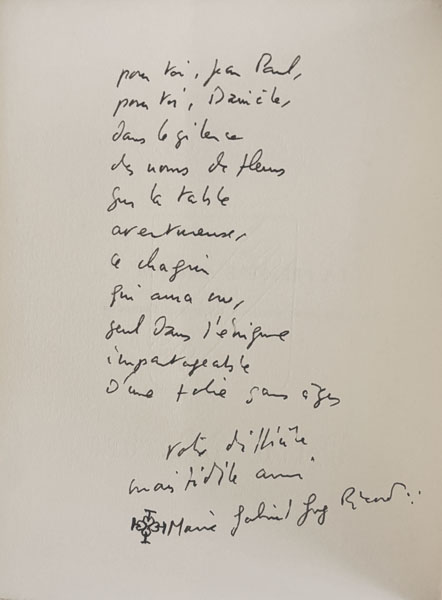 pour toi, Jean Paul,
pour toi, Danièle,
dans le silence
des noms de fleurs
sur la table
aventureuse,
ce chagrin
qui aura vu,
seul dans l'énigme
impartageable
D'une folie sans âges
votre difficile
mais fidèle ami
Marie Gabriel Guez Ricord